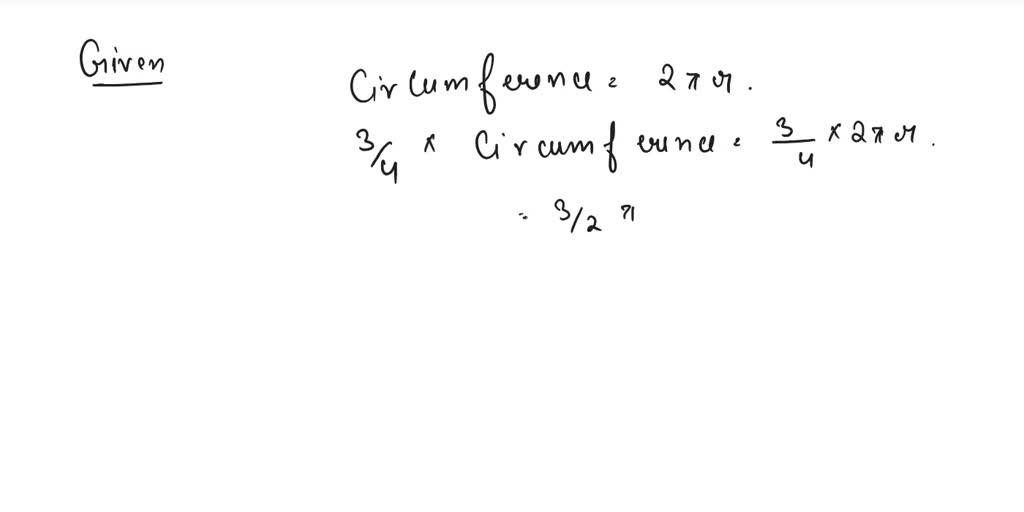 Given
Circumference = 2πr.
3/4 × Circumference = 3/4 × 2πr.
= 3/2 π